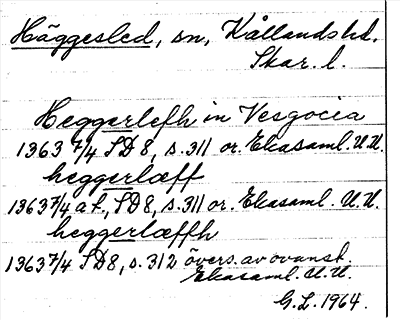 Häggesled, sn, Kållands hd.
Skar. l.
Heggerlefh in Vesgocia
1363 7/4 SD 8, s. 311 or. Ekasaml. U.U.
heggerlæff
1363 7/4 a f., SD 8, s. 311 or. Ekasaml. U.U.
heggerlæffh
1363 7/4 SD 8, s. 312 övers. av ovanst.
Ekasaml. U.U.
G.L. 1964.